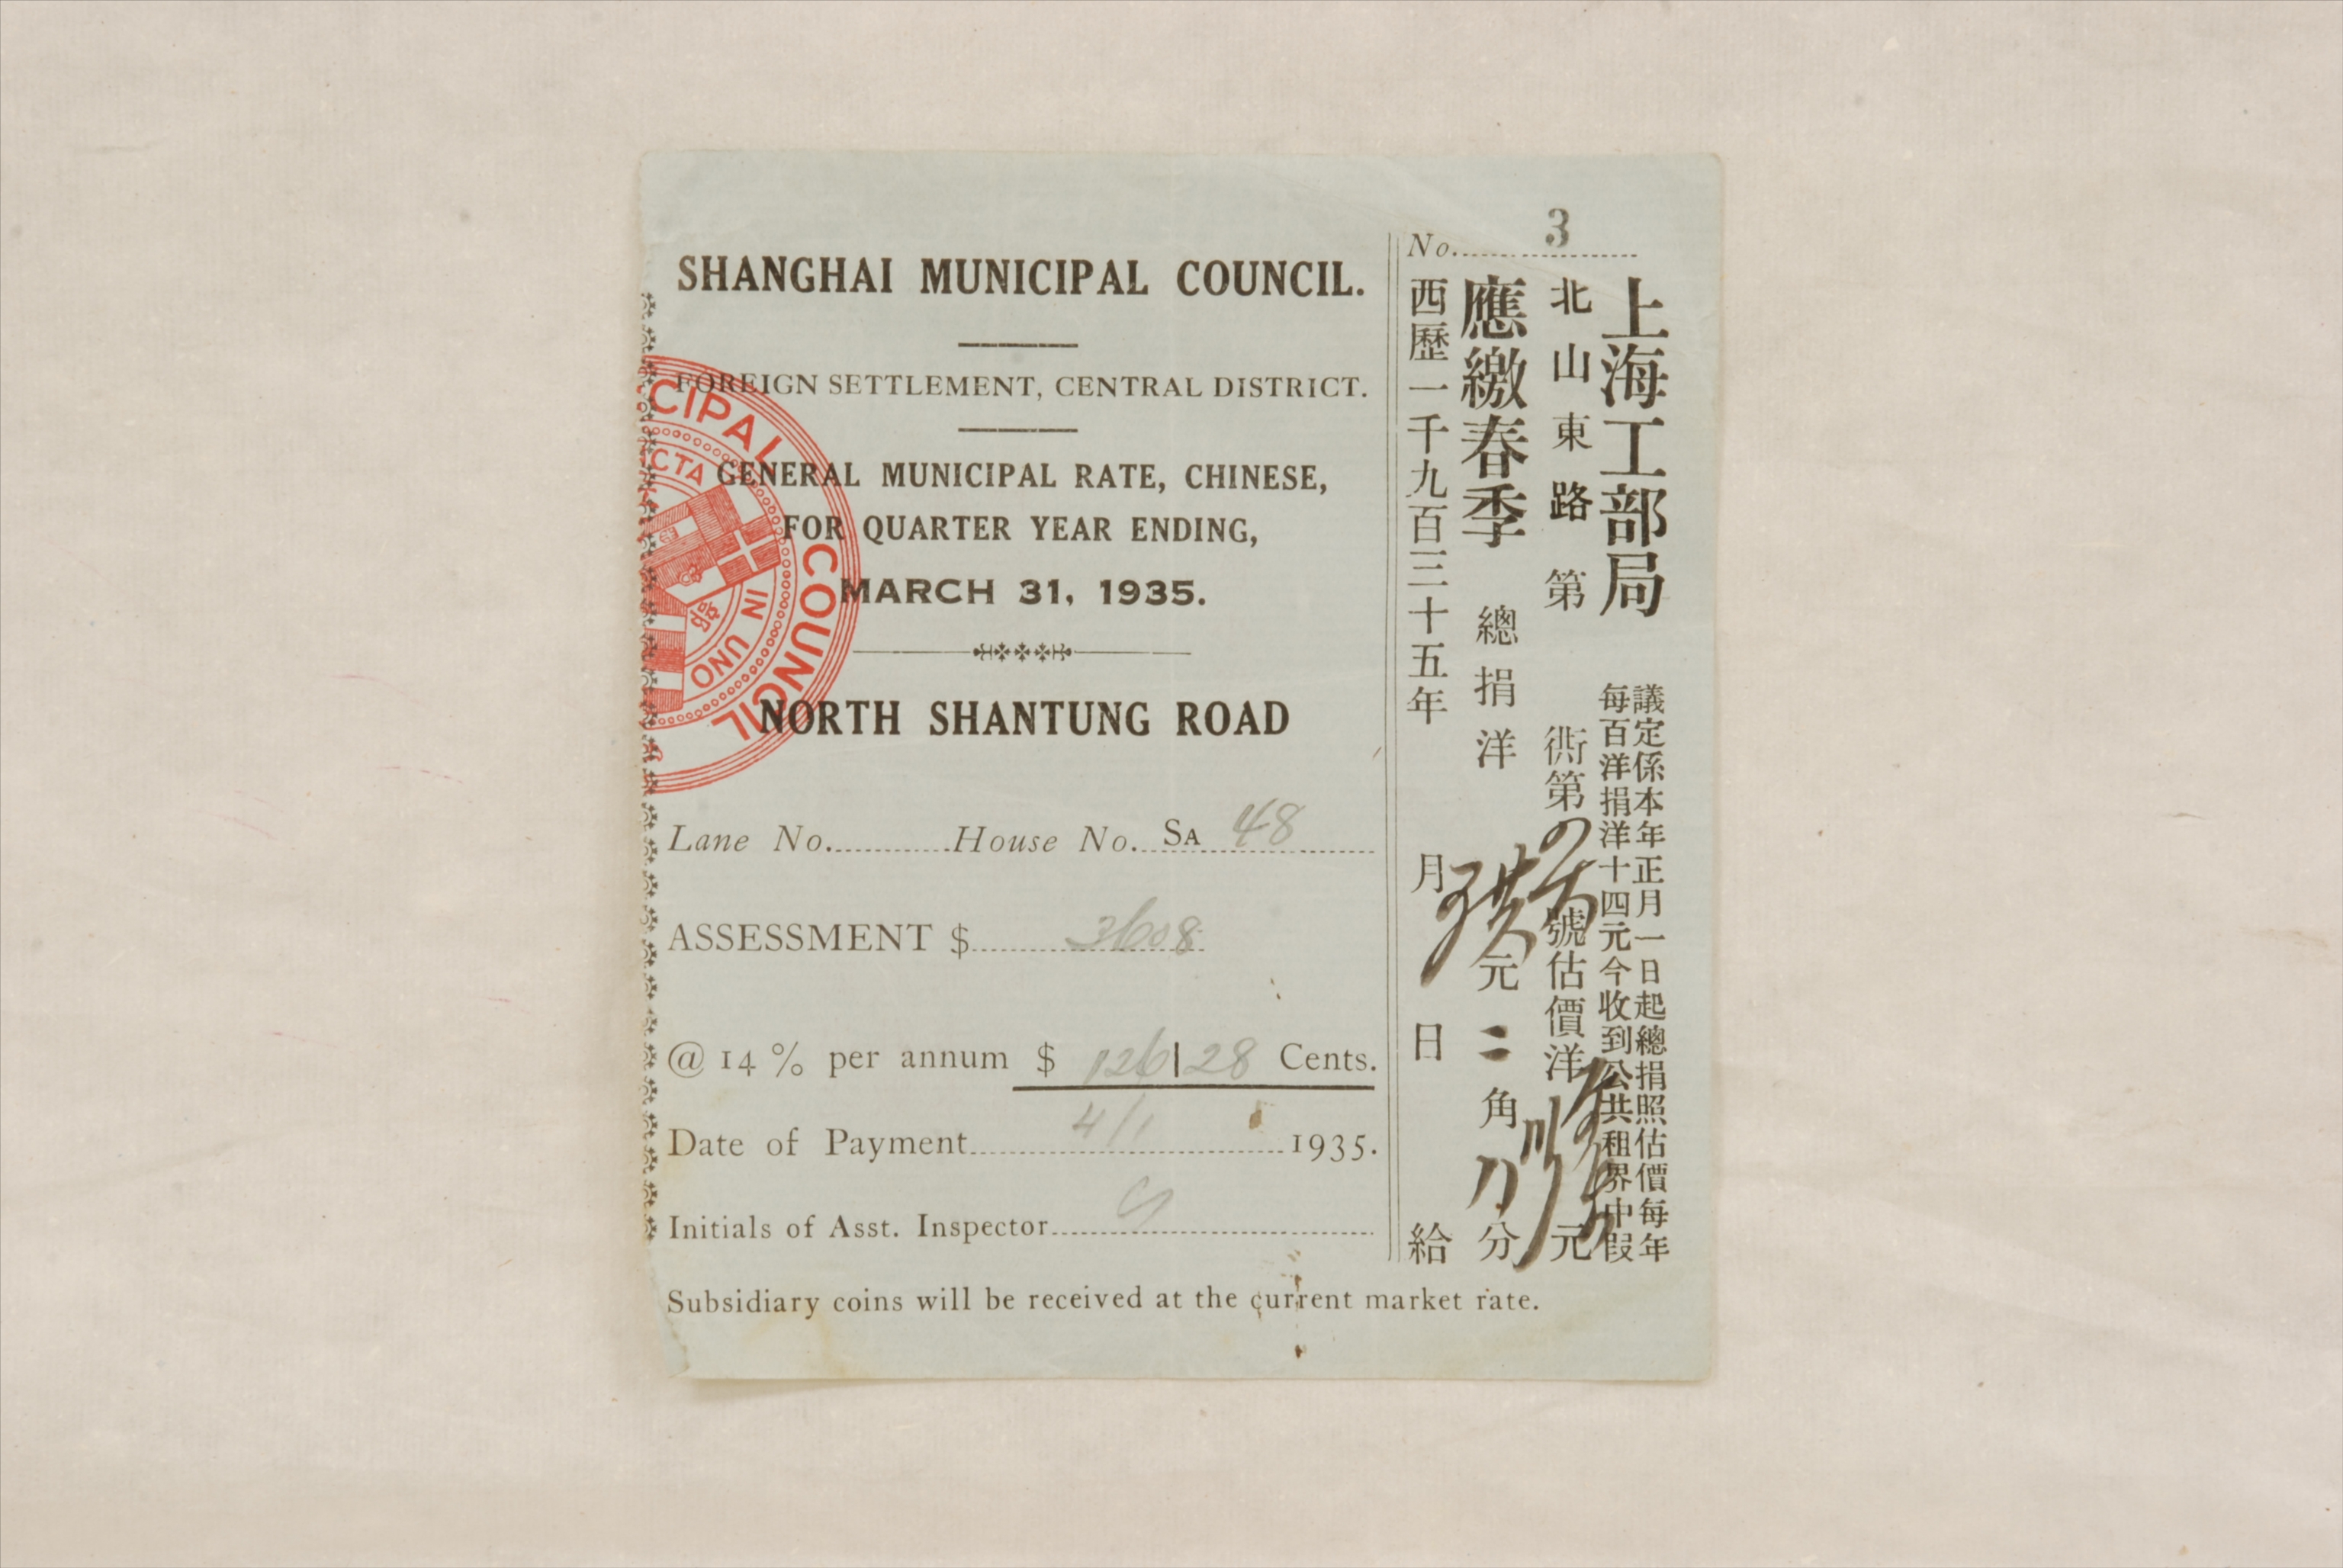 SHANGHAI MUNICIPAL COUNCIL.
FOREIGN SETTLEMENT, CENTRAL DISTRICT.
GENERAL MUNICIPAL RATE, CHINESE,
FOR QUARTER YEAR ENDING,
MARCH 31, 1935.
NORTH SHANTUNG ROAD
Lane No. House No. SA 48
ASSESSMENT $ 3608
@ 14 % per annum $ 126|28 Cents.
Date of Payment 4/1 1935.
Initials of Asst. Inspector
Subsidiary coins will be received at the current market rate.
CIPAL COUNCIL
CTA IN UNO
No. 3
上海工部局
議定係本年正月一日起總捐照估價每年
每百洋捐洋十四元今收到公共租界中叚
北山東路第 衖第 號估價洋 元
應繳春季 總捐洋 元 二 角 分
西歷一千九百三十五年 月 日 給